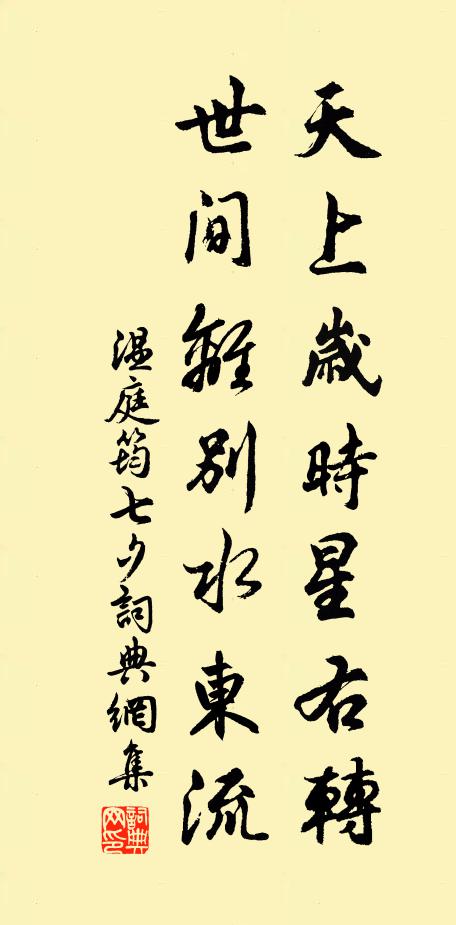 天上歲時星右轉
世间離别水東流
温庭筠七夕詞典網集
詞典網印